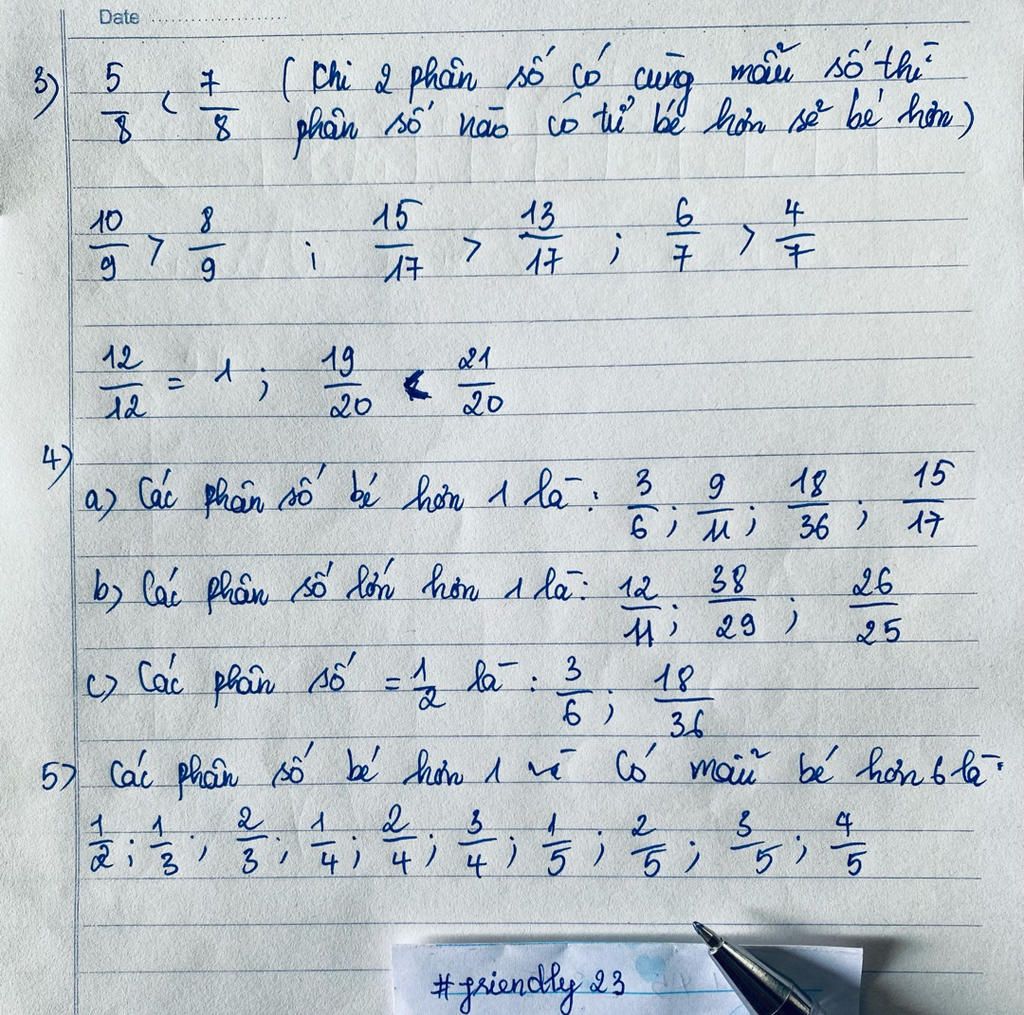 Date ........................
3) 5/8 < 7/8 ( Khi 2 phân số có cùng mẫu số thì
phân số nào có tử bé hơn sẽ bé hơn )
10/9 > 8/9 ; 15/17 > 13/17 ; 6/7 > 4/7
12/12 = 1 ; 19/20 < 21/20
4)
a) Các phân số bé hơn 1 là : 3/6 ; 9/11 ; 18/36 ; 15/17
b) Các phân số lớn hơn 1 là : 12/11 ; 38/29 ; 26/25
c) Các phân số = 1/2 là : 3/6 ; 18/36
5) Các phân số bé hơn 1 và có mẫu bé hơn 6 là :
1/2 ; 1/3 ; 2/3 ; 1/4 ; 2/4 ; 3/4 ; 1/5 ; 2/5 ; 3/5 ; 4/5
#friendly 23